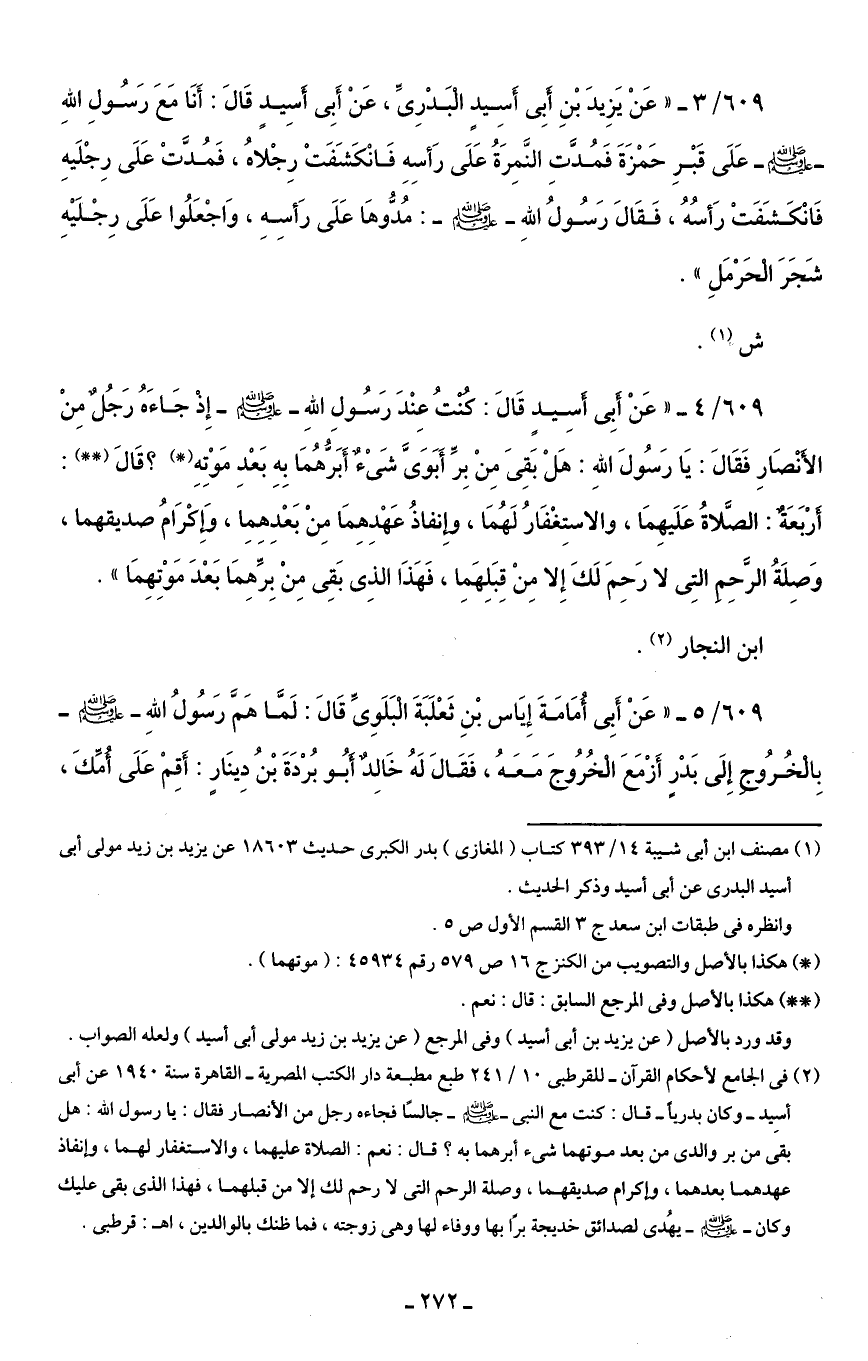 ٣/٦٠٩ ـ « عَنْ يَزِيدَ بْنِ أَبِى أَسِيدٍ الْبَدْرِىِّ ، عَنْ أَبِى أَسِيدٍ قَالَ : أَنَا مَعَ رَسُولِ اللهِ
ـ ﷺ ـ عَلَى قَبْرِ حَمْزَةَ فَمُدَّتِ النَّمِرَةُ عَلَى رَأسِهِ فَانْكَشَفَتْ رِجْلاَهُ ، فَمُدَّتْ عَلَى رِجْلَيهِ
فَانْكَشَفَتْ رَأسُهُ ، فَقَالَ رَسُولُ اللهِ ـ ﷺ ـ : مُدُّوهَا عَلَى رَأسِهِ ، وَاجْعَلُوا عَلَى رِجْلَيْهِ
شَجَرَ الْحَرْمَلِ » .
ش (١) .
٤/٦٠٩ ـ « عَنْ أَبِى أَسِيدٍ قَالَ : كُنْتُ عِنْدَ رَسُولِ اللهِ ـ ﷺ ـ إِذْ جَاءَهُ رَجُلٌ مِنَ
الأَنْصَارِ فَقَالَ : يَا رَسُولَ اللهِ : هَلْ بَقِىَ مِنْ بِرِّ أَبَوَىَّ شَىْءٌ أَبَرُّهُمَا بِهِ بَعْدِ مَوْتِهِ(*) ؟ قَالَ (**) :
أَرْبَعَةٌ : الصَّلاَةُ عَلَيهِمَا ، والاستغْفَارُ لَهُمَا ، وإنفاذُ عَهْدِهِمَا مِنْ بَعْدِهِما ، وَإكْرَامُ صديقهما ،
وَصِلَةُ الرَّحِمِ التِى لا رَحِمَ لَكَ إلا مِنْ قِبَلِهَمِا ، فَهَذَا الذِى بَقِى مِنْ بِرِّهِمَا بَعْدَ مَوْتِهِمَا » .
ابن النجار (٢) .
٥/٦٠٩ ـ « عَنْ أَبِى أُمَامَةَ إِيَاسِ بْنِ ثَعْلَبَةَ الْبَلَوِىِّ قَالَ : لَمَّا هَمَّ رَسُولُ اللهِ ـ ﷺ ـ
بِالْخُرُوجِ إِلَى بَدْرٍ أَزْمَعَ الْخُرُوجَ مَعَهُ ، فَقَالَ لَهُ خَالِدٌ أَبُو بُرْدَةَ بْنُ دِينَارٍ : أَقِمْ عَلَى أُمِّكَ ،
(١) مصنف ابن أبى شيبة ٣٩٣/١٤ كتاب ( المغازى ) بدر الكبرى حديث ١٨٦٠٣ عن يزيد بن زيد مولى أبى
أسيد البدرى عن أبى أسيد وذكر الحديث .
وانظره فى طبقات ابن سعد ج ٣ القسم الأول ص ٥ .
(*) هكذا بالأصل والتصويب من الكنز ج ١٦ ص ٥٧٩ رقم ٤٥٩٣٤ : ( موتهما ) .
(**) هكذا بالأصل وفى المرجع السابق : قال : نعم .
وقد ورد بالأصل ( عن يزيد بن أبى أسيد ) وفى المرجع ( عن يزيد بن زيد مولى أبى أسيد ) ولعله الصواب .
(٢) فى الجامع لأحكام القرآن ـ للقرطبى ١٠ / ٢٤١ طبع مطبعة دار الكتب المصرية ـ القاهرة سنة ١٩٤٠ عن أبى
أسيد ـ وكان بدرياً ـ قال : كنت مع النبى ـ ﷺ ـ جالسًا فجاءه رجل من الأنصار فقال : يا رسول الله : هل
بقى من بر والدى من بعد موتهما شىء أبرهما به ؟ قال : نعم : الصلاة عليهما ، والاستغفار لهما ، وإنفاذ
عهدهما بعدهما ، وإكرام صديقهما ، وصلة الرحم التى لا رحم لك إلا من قبلهما ، فهذا الذى بقى عليك
وكان ـ ﷺ ـ يهُدى لصدائق خديجة برًا بها ووفاء لها وهى زوجته ، فما ظنك بالوالدين ، اهـ : قرطبى .
ـ ٢٧٢ ـ